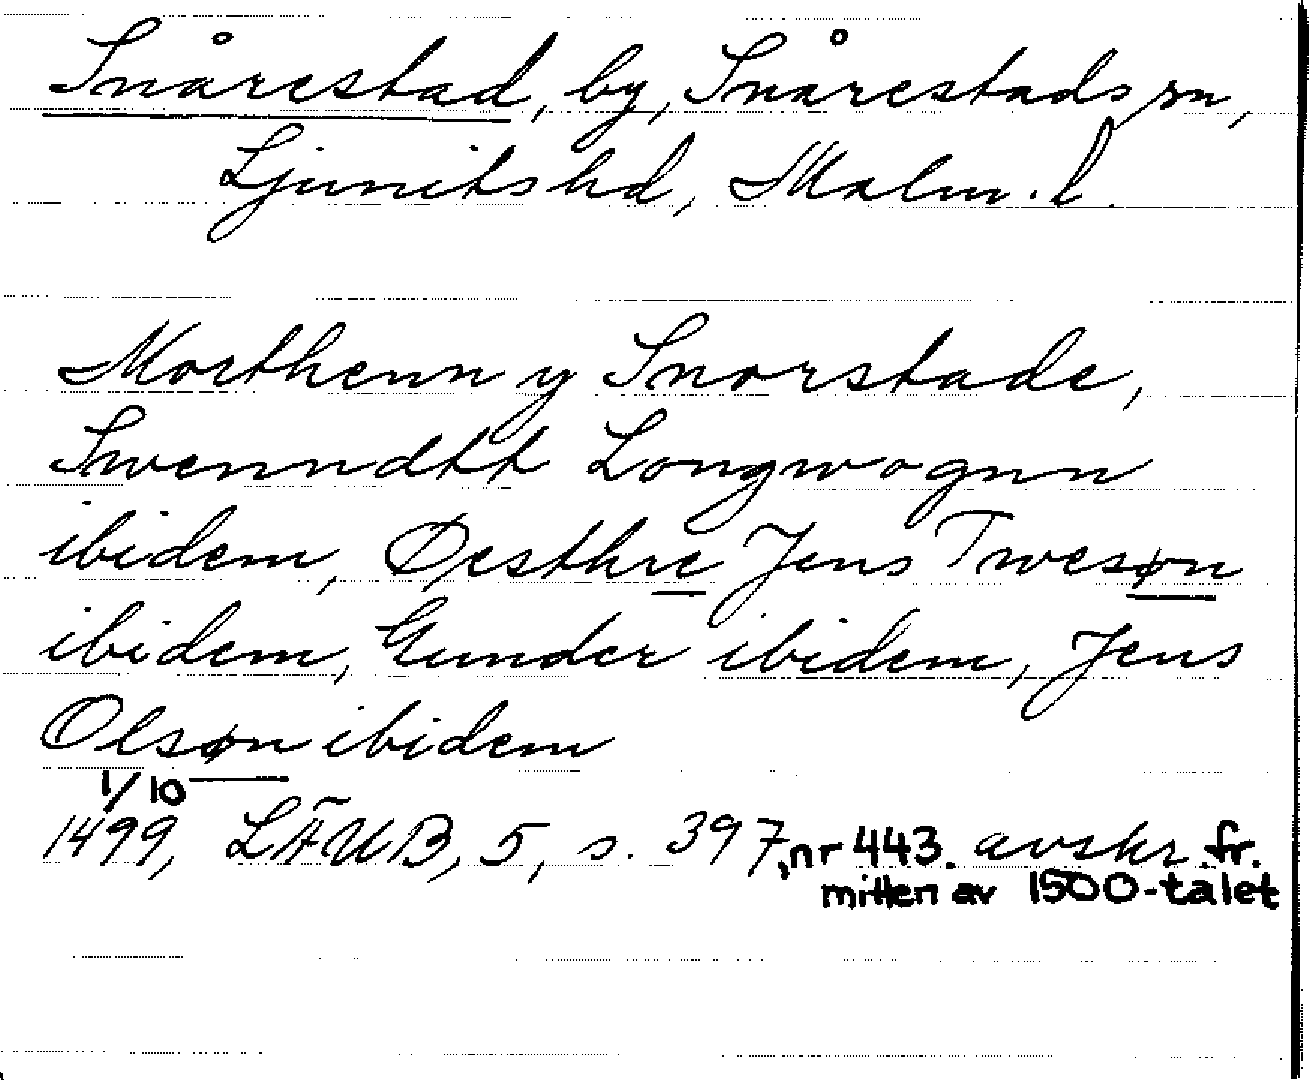 Snårestad, by, Snårestads sn,
Ljunits hd, Malm. l.
Morthenn y Snorstade,
Swenndtt Longwognn
ibidem, Øesthre Jens Twesøn
ibidem, Gunder ibidem, Jens
Olsøn ibidem
1/10
1499, LÄUB, 5, s. 397, nr 443. avskr. fr.
mitten av 1500-talet